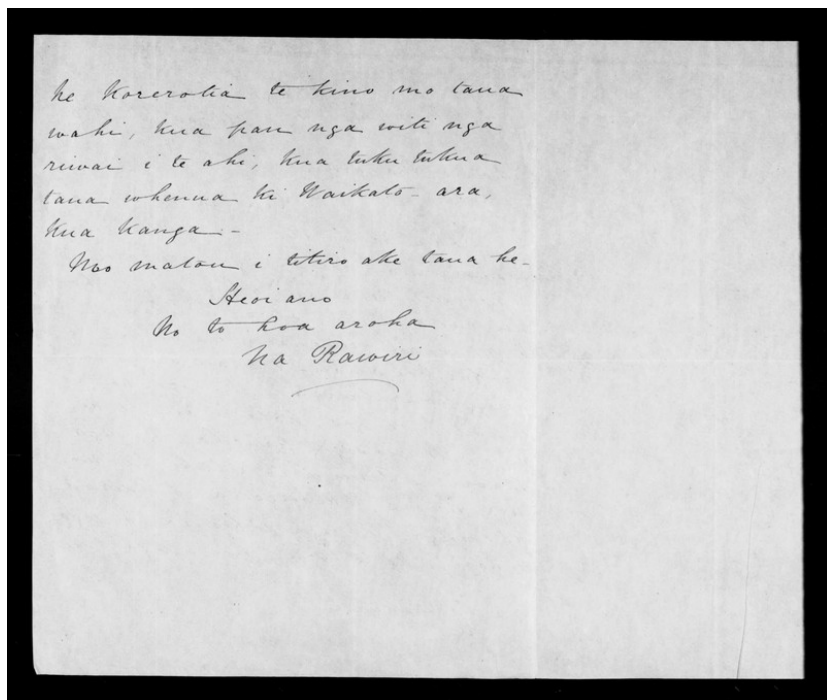 he Korerotia te kino mo taua
wahi, kua pau nga witi nga
riwai i te ahi, kua tuku tukua
taua whenua ki Waikato - ara,
kua Kanga -
Mao matou i titiro ake taua he -
Heoi ano
No to hoa aroha
Na Rawiri